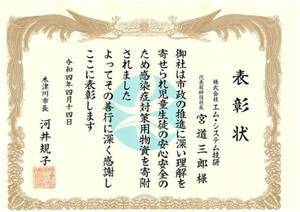 表彰状
株式会社 エム・システム技研
代表取締役社長
宮道三郎 様
御社は市政の推進に深い理解を
寄せられ児童生徒の安心安全の
ため感染症対策用物資を寄附
されました
よってその善行に深く感謝し
ここに表彰します
令和四年四月十四日
木津川市長 河井規子